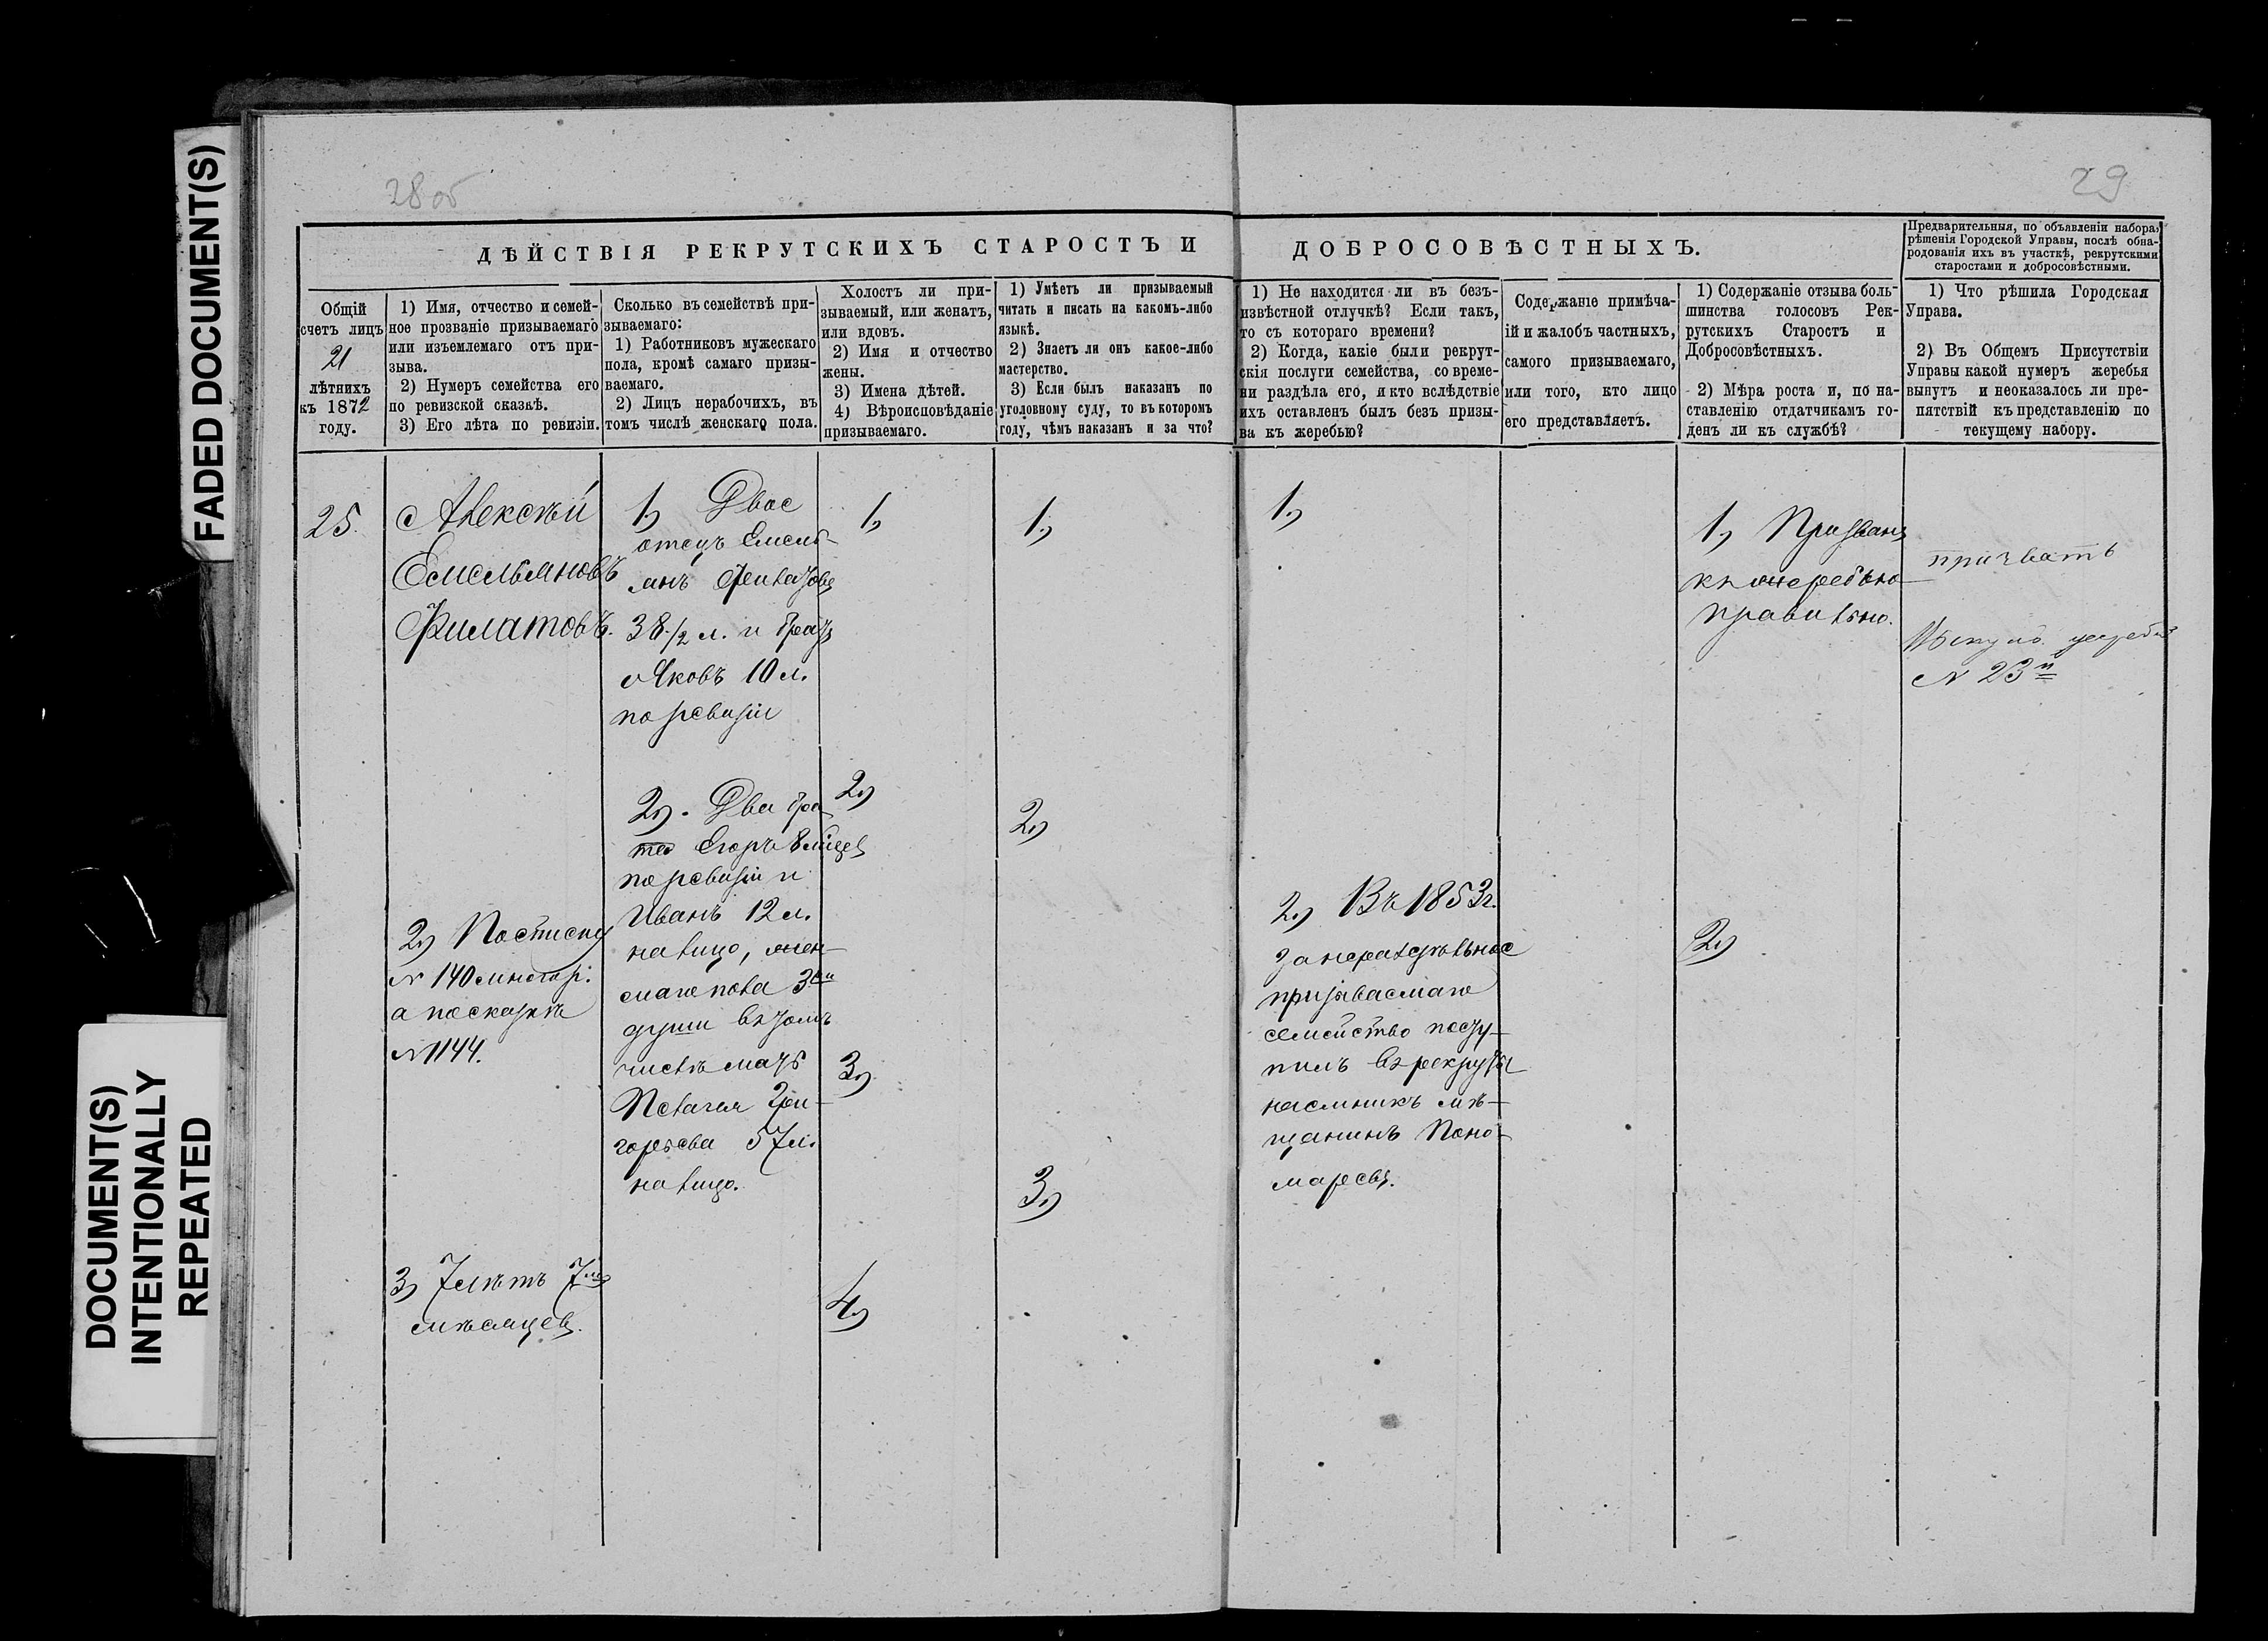 FADED DOCUMENT(S)
DOCUMENT(S)
INTENTIONALLY
REPEATED
28 об
29
ДѢЙСТВІЯ РЕКРУТСКИХЪ СТАРОСТЪ И ДОБРОСОВѢСТНЫХЪ.
Предварительныя, по объявленіи набора,
рѣшенія Городской Управы, послѣ обна-
родованія ихъ въ участкѣ, рекрутскими
старостами и добросовѣстными.
Общій
счетъ лицъ
21
лѣтнихъ
къ 1872
году.
1) Имя, отчество и семей-
ное прозваніе призываемаго
или изъемлемаго отъ при-
зыва.
2) Нумеръ семейства его
по ревизской сказкѣ.
3) Его лѣта по ревизіи.
Сколько въ семействѣ при-
зываемаго:
1) Работниковъ мужескаго
пола, кромѣ самаго призы-
ваемаго.
2) Лицъ нерабочихъ, въ
томъ числѣ женскаго пола.
Холостъ ли при-
зываемый, или женатъ,
или вдовъ.
2) Имя и отчество
жены.
3) Имена дѣтей.
4) Вѣроисповѣданіе
призываемаго.
1) Умѣетъ ли призываемый
читать и писать на какомъ-либо
языкѣ.
2) Знаетъ ли онъ какое-либо
мастерство.
3) Если былъ наказанъ по
уголовному суду, то въ которомъ
году, чѣмъ наказанъ и за что?
1) Не находится ли въ безъ-
извѣстной отлучкѣ? Если такъ,
то съ котораго времени?
2) Когда, какіе были рекрут-
скія послуги семейства, со време-
ни раздѣла его, и кто вслѣдствіе
ихъ оставленъ былъ безъ призы-
ва къ жеребью?
Содержаніе примѣча-
ій и жалобъ частныхъ,
самого призываемаго,
или того, кто лицо
его представляетъ.
1) Содержаніе отзыва боль-
шинства голосовъ Рек-
рутскихъ Старостъ и
Добросовѣстныхъ.
2) Мѣра роста и, по на-
ставленію отдатчикамъ го-
денъ ли къ службѣ?
1) Что рѣшила Городская
Управа.
2) Въ Общемъ Присутствіи
Управы какой нумеръ жеребья
вынутъ и неоказалось ли пре-
пятствій къ представленію по
текущему набору.
25.
Алексѣй
Емельяновъ
Филатовъ.
2) По списку
N 140
а по сказкѣ
N 1144.
3) 7 лѣтъ 7
мѣсяцевъ.
1) Двое
отецъ Емель-
янъ
38 1/2 л. и братъ
Яковъ 10 л.
по ревизіи
2) Два бра-
та Егоръ 8 мѣсяцевъ
по ревизіи и
Иванъ 12 л.
на лицо, жен-
скаго пола 3
души въ томъ
числѣ мать
Пелагея Гри-
горьева 57 л.
на лицо.
1)
2)
3)
4)
1)
2)
3)
1)
2) Въ 1853 г.
за нераздѣльное
призываемаго
семейство посту-
пилъ въ рекруты
наемникъ мѣ-
щанинъ Поно-
маревъ.
1) Призванъ
къ жеребью
правильно.
2)
призвать
Вынутъ жеребій
N 23 й